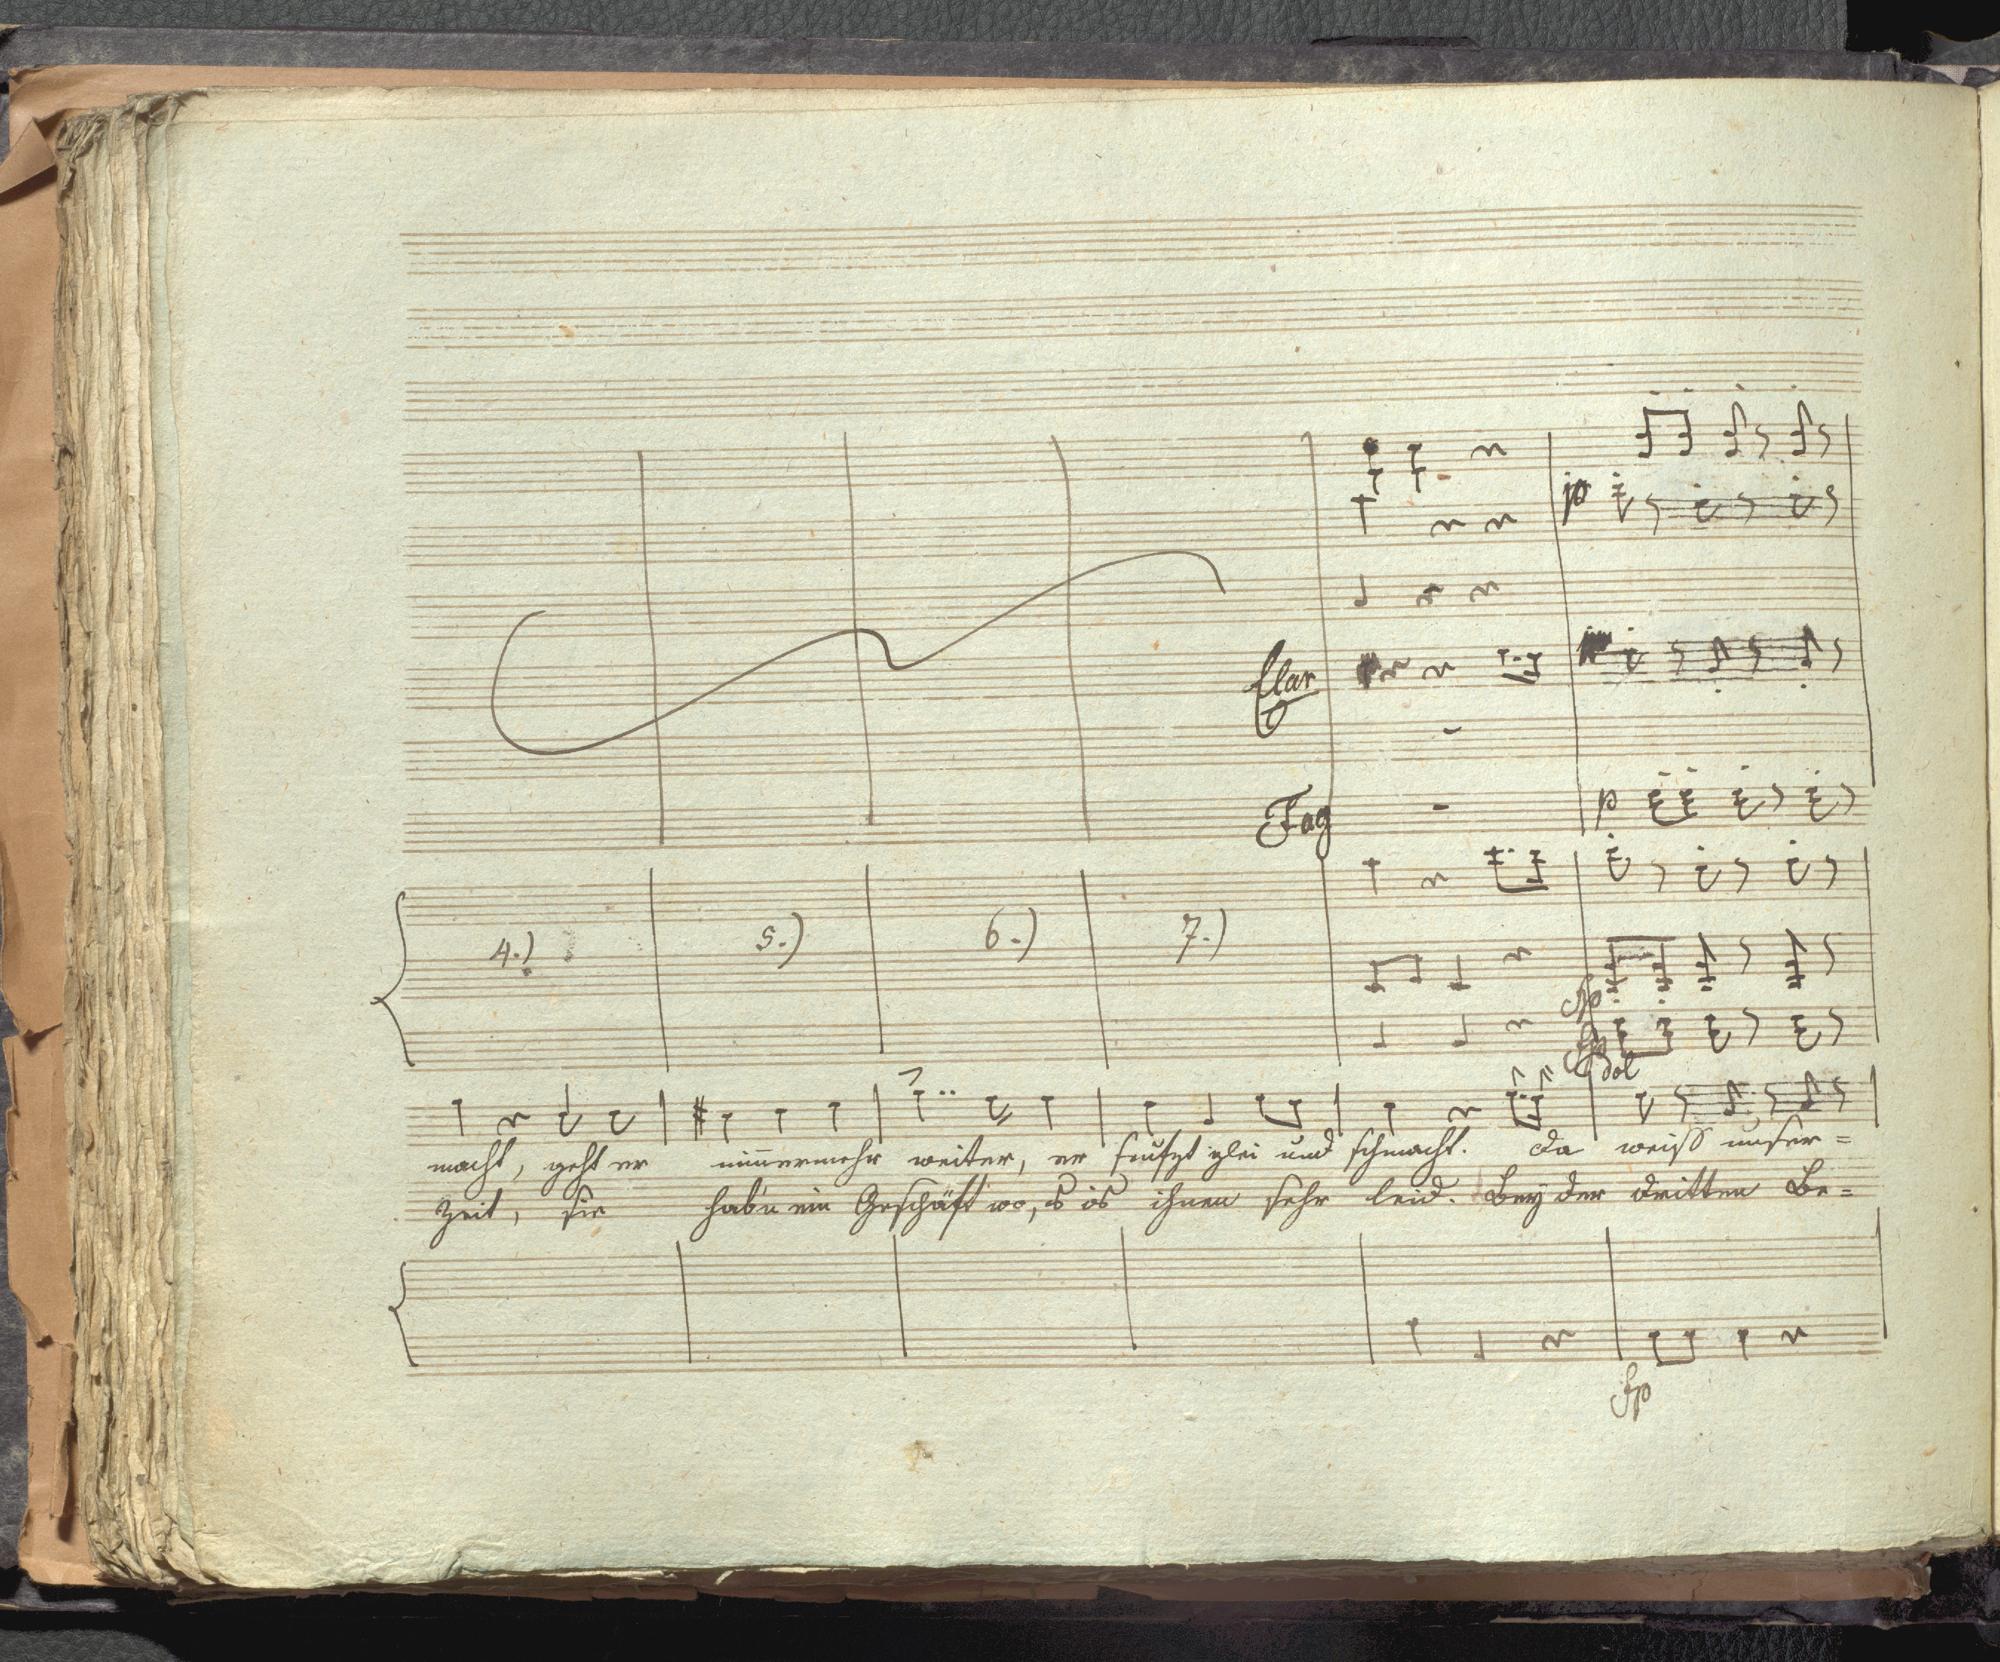 p
Clar
Fag
p
4.) 5.) 6.) 7.)
fp
fp
dol
macht, geht er nimmermehr weiter, er seufzt glei und schmacht. Da weiß unser=
Zeit, sie hab'n ein Geschäft wo, 's is ihnen sehr leid. Bey der dritten Be=
fp